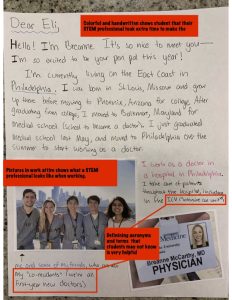 Dear Eli,
Colorful and handwritten shows student that their
STEM professional took extra time to make the
Hello! I'm Breanne. It's so nice to meet you—
I'm so excited to be your pen pal this year!
I'm currently living on the East Coast in
Philadelphia. I was born in St. Louis, Missouri and grew
up there before moving to Phoenix, Arizona for college. After
graduating from college, I moved to Baltimore, Maryland for
medical school (school to become a doctor). I just graduated
medical school last May, and moved to Philadelphia over the
Summer to start working as a doctor.
Pictures in work attire shows what a STEM
professional looks like when working.
I work as a doctor in
a hospital in Philadelphia.
I take care of patients
throughout the hospital, including
in the ICU
Delimising acronyms
and terms that
students may not know
is very helpful
me and some of my friends, who are also
my "co-residents" (we're all
first-year new doctors)
Medicine
Breanne McCarthy, MD
PHYSICIAN